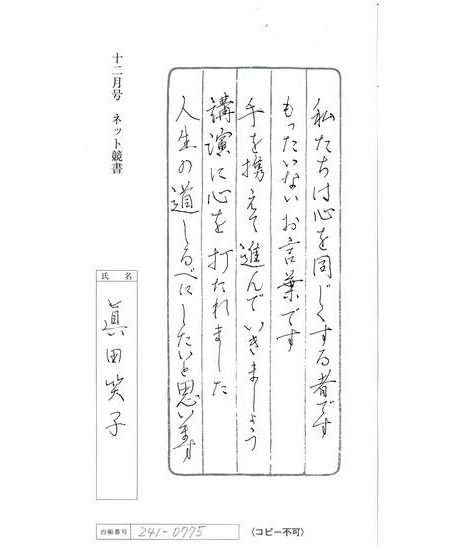 私たちは心を同じくする者です
もったいないお言葉です
手を携えて進んでいきましょう
講演に心を打たれました
人生の道しるべにしたいと思います
十二月号 ネット競書
氏名
眞田笑子
台帳番号 241-0775
〈コピー不可〉